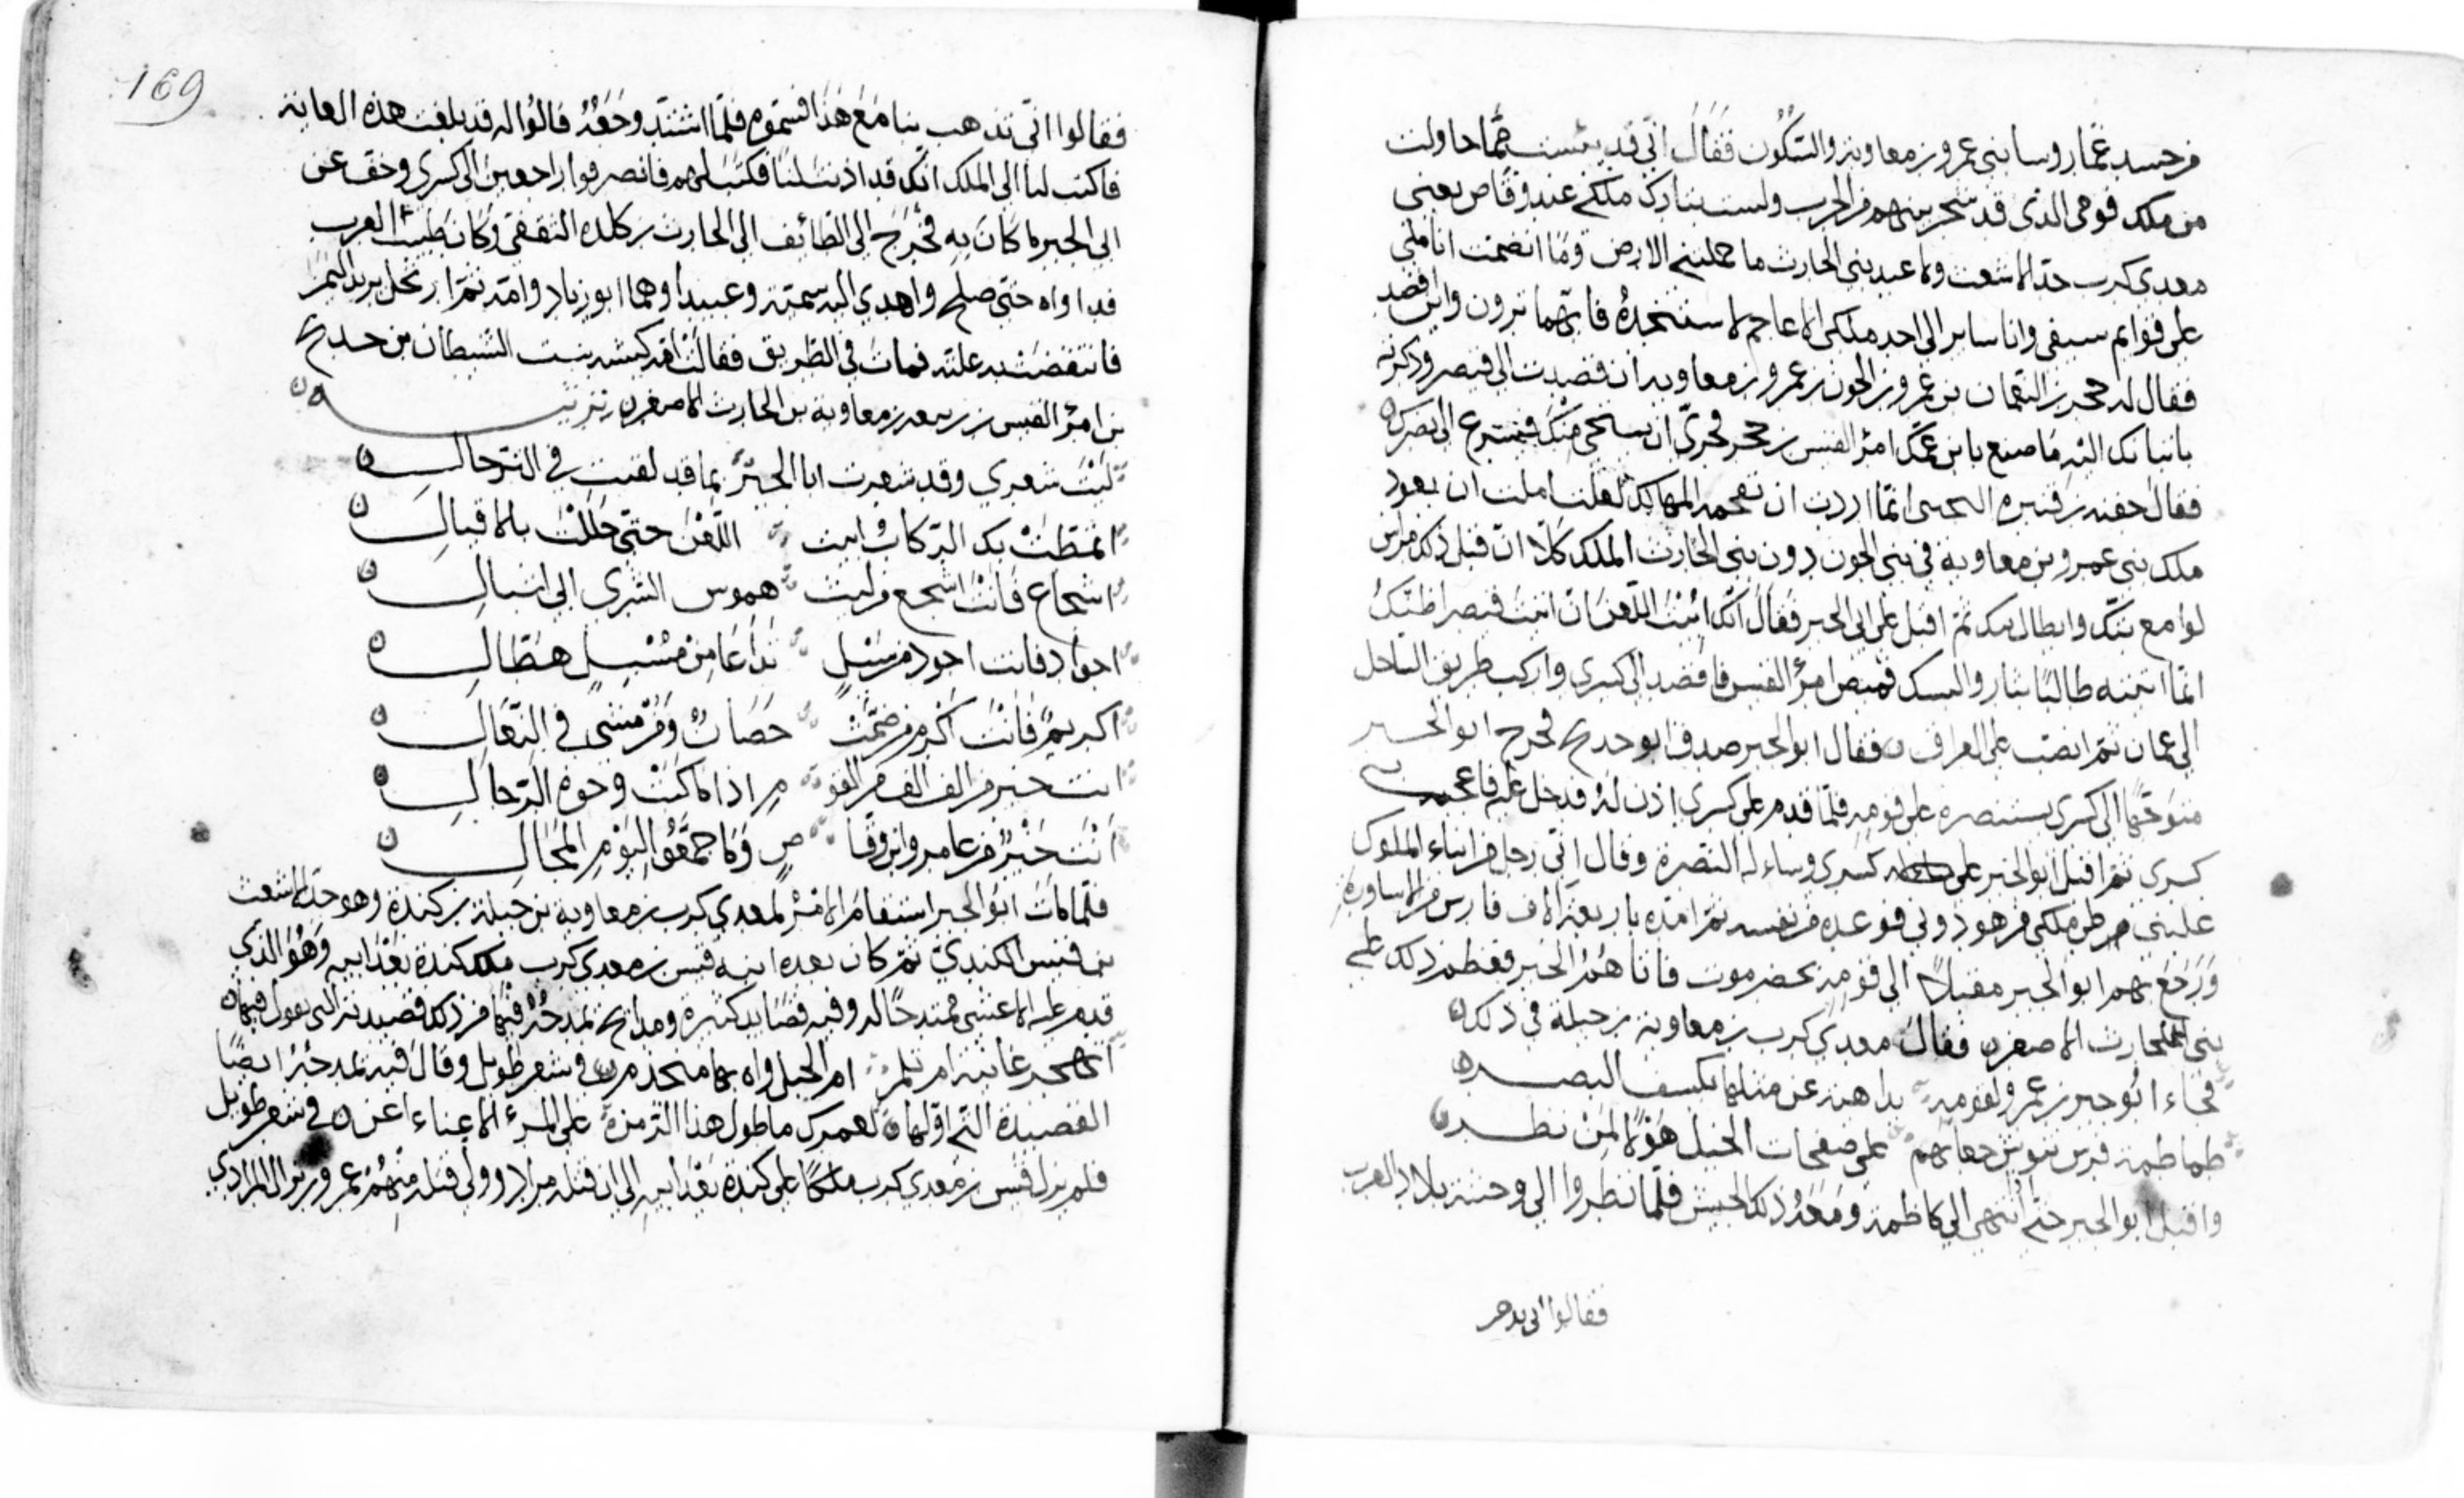 من حسد عمار وسا بني عمرو بن معاوية والسكون فقال اني قد يئست مما حاولت
من ملك قومي الذي قد شجر بينهم من الحرب ولست بتارك ملككم عند وقاص يعني
معدي كرب جد الاشعث ولا عبد بني الحارث ما حملتني الارض وما انضمت اناملي
على قوائم سيفي وانا ساير الى احد ملكي الاعاجم لاستنجده فايهما ترون واين اقصد
فقال له حجر بن النعمان بن عمرو بن الجون بن عمرو بن معاوية ان قصدت الى قيصر وذكرته
باتيانك اليه ما صنع بابن عمك امرؤ القيس بن حجر فحري ان يستحي منك فيسرع الى نصرك
فقال جفنة بن قتيرة التجيبي انما اردت ان تقحمه المهالك لعلك املت ان يعود
ملك بني عمرو بن معاوية في بني الجون دون بني الحارث الملك كلا ان قبل ذلك مراس
ثم اقبل على ابي الجبر فقال انك ابيت اللعن ان اتيت قيصر اظنك
انما اتيته طالبا بثار قميص امرؤ القيس فاقصد الى كسرى واركب طريق الساحل
الى عمان ثم انصب على العراق فقال ابو الجبر صدق ابو حديج فخرج ابو الجبر
متوجها الى كسرى يستنصره على قومه فلما قدم على كسرى اذن له فدخل عليه فاعجب
كسرى ثم اقبل ابو الجبر على كسرى وساءله النصرة وقال اني رجل من ابناء الملوك
غلبني على ملكي من هو دوني فوعده من نفسه ثم امده باربعة الاف فارس من الاساورة
ورجع بهم ابو الجبر مقبلا الى قومه بحضرموت فاتاهم الخبر فعظم ذلك على
بني الحارث الاصغر فقال معدي كرب بن معاوية بن جبلة في ذلك
فجاء ابو جبر بن عمرو لقومه بداهية عن مثلها يكسف البصر
طماطمة فرس على صفحات الخيل هولا لمن نظر
واقبل ابو الجبر حتى انتهى الى كاظمة ومعه ذلك الجيش فلما نظروا الى وحشة بلاد العرب
فقالوا اني تذهب
169
فقالوا اني تذهب بنا مع هذا فسموه فلما اشتد وجعه قالوا له قد بلغت هذه الغاية
فاكتب لنا الى الملك انك قد اذنت لنا فكتب لهم فانصرفوا راجعين الى كسرى وخف عن
ابي الجبر ما كان به فخرج الى الطائف الى الحارث بن كلدة الثقفي وكان طبيب العرب
فداواه حتى صلح واهدي اليه سمية وعبيدا وهما ابو زياد وامه ثم ارتحل يريد اليمن
فانتقضت به علته فمات في الطريق فقالت اقه كبشه بنت الشيطان بن حديج
بن امرؤ القيس بن ربيعة بن معاوية بن الحارث الاصغر ترثيه
ليت شعري وقد شعرت ابا الجبر بما قد لقيت في الترحال
اتمطت بك الركاب ابيت اللعن حتى حللت بالاقيال
اشجاع فانت اشجع من ليث هموس السرى ابي اشبال
اجواد فانت اجود من سيل تداعا من مسبل هطال
اكريم فانت اكرم من ضمت حصان ومن مشى في النعال
انت خير من الف الف من القوم اذا ما كنت وجوه الرجال
انت خير من عامر وابن وقاص وما جمعوا ليوم المحال
فلما مات ابو الجبر استقام الامر لمعدي كرب بن معاوية بن جبلة بن كندة وهو جد الاشعث
بن قيس الكندي ثم كان بعده ابنه قيس بن معدي كرب ملك كندة بعد ابيه وهو الذي
قدم عليه الاعشى ممتدحا له وفيه قصايد كثيرة ومدايح يمدحه فيها فمن ذلك قصيدته التي يقول فيها
اتهجر غانية ام تلم ام الحبل واه بها منجذم في شعر طويل وقال فيه يمدحه ايضا
القصيدة التي اولها لعمرك ما طول هذا الزمن على المرء الا عناء معن في شعر طويل
فلم يزل قيس بن معدي كرب ملكا على كندة بعد ابيه الى ان قتله مراد وولي قتله منهم عمرو بن نزال المرادي